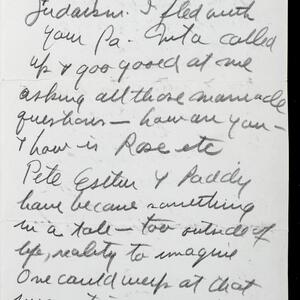 Judaism. I fled with
your Pa. Anta called
up & goo gooed at me
asking all those manmade
questions — how are you —
& how is Rose etc
Pete Esther & Paddy
have became something
in a tale — too outside of
life, reality to imagine
One could weep at that